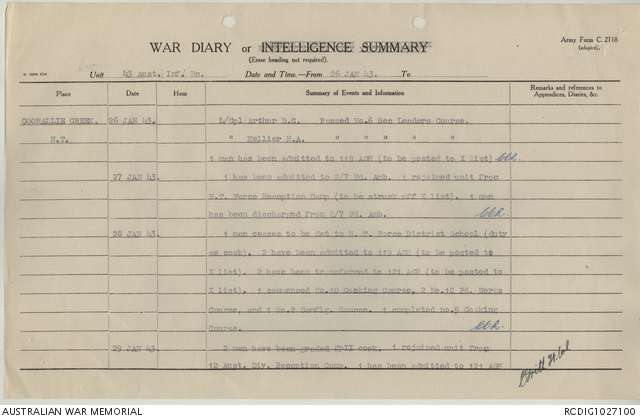 Army Form C. 2118
(adapted).
WAR DIARY or INTELLIGENCE SUMMARY
(Erase heading not required).
Unit 43 Aust. Inf. Bn. Date and Time.—From 26 JAN 43. To
Place Date Hour Summary of Events and Information Remarks and references to Appendices, Diaries, &c.
COORALLIE CREEK. 26 JAN 43. L/Cpl Arthur D.C. Passed No.6 Sec Leaders Course.
N.T. " Hellier N.A. " " " " "
1 man has been admitted to 119 AGH (to be posted to X list)
27 JAN 43. 1 has been admitted to 2/7 Fd. Amb. 1 rejoined unit from
N.T. Force Reception Camp (to be struck off X list). 1 man
has been discharged from 2/7 Fd. Amb.
28 JAN 43. 1 man ceases to be Det to N.T. Force District School (duty
as cook). 2 have been admitted to 119 AGH (to be posted to
X list). 2 have been transferred to 121 AGH (to be posted to
X list). 1 commenced No.10 Cooking Course, 2 No.12 Fd. Works
Course, and 1 No.2 Camflg. Course. 1 completed no.9 Cooking
Course.
29 JAN 43. 2 men have been graded GpII cook. 1 rejoined unit from
12 Aust. Div. Reception Camp. 1 has been admitted to 121 AGH
AUSTRALIAN WAR MEMORIAL RCDIG1027100